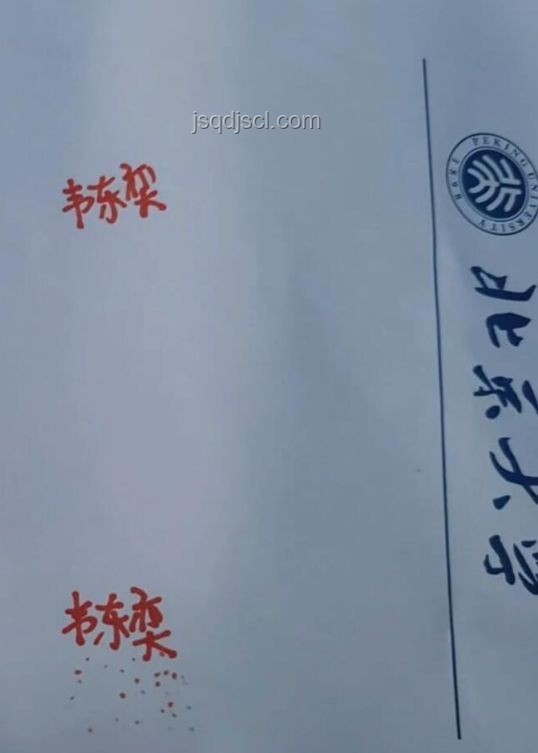 jsqdjscl.com
韦东奕
PEKING UNIVERSITY
1898
北京大学
韦东奕